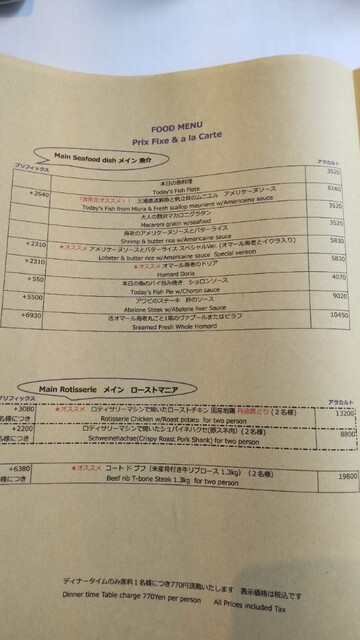 FOOD MENU
Prix Fixe & a la Carte
Main Seafood dish メイン 魚介
プリフィックス アラカルト
本日の魚料理 3520
Today's Fish Plate
+2640 三浦直送鮮魚と帆立貝のムニエル アメリケーヌソース 6160
Today's Fish from Miura & Fresh scallop meuniere w/Americaine sauce
大人の贅沢マカロニグラタン 3520
Macaroni gratin w/seafood
海老のアメリケーヌソースとバターライス 3520
Shrimp & butter rice w/Americaine sauce
+2310 ★オススメ アメリケーヌソースとバターライス スペシャルVer. (オマール海老とイクラ入り) 5830
Lobster & butter rice w/Americaine sauce Special version
+2310 ★オススメ オマール海老のドリア 5830
Homard Doria
+550 本日の魚のパイ包み焼き ショロンソース 4070
Today's Fish Pie w/Choron sauce
+5500 アワビのステーキ 肝のソース 9020
Abalone Steak w/Abalone liver Sauce
+6930 活オマール海老丸ごと1尾のヴァプールまたはピラフ 10450
Sreamed Fresh Whole Homard
Main Rotisserie メイン ローストマニア
プリフィックス アラカルト
+3080 ★オススメ ロティサリーマシンで焼いたローストチキン 国産地鶏 丹波黒どり (2名様) 13200
名様につき Rotisserie Chicken w/Roast potato for two person
+2200 ロティサリーマシンで焼いたシュバイネハクセ(豚スネ肉) (2名様) 8800
名様につき Schweinehachse(Crispy Roast Pork Shank) for two person
+6380 ★オススメ コート ド ブフ (米産骨付き牛リブロース 1.3kg) (2名様) 19800
名様につき Beef rib T-bone Steak 1.3kg for two person
ディナータイムのみ席料1名様につき770円頂戴いたします 表示価格は税込です
Dinner time Table charge 770Yen per person All Prices included Tax